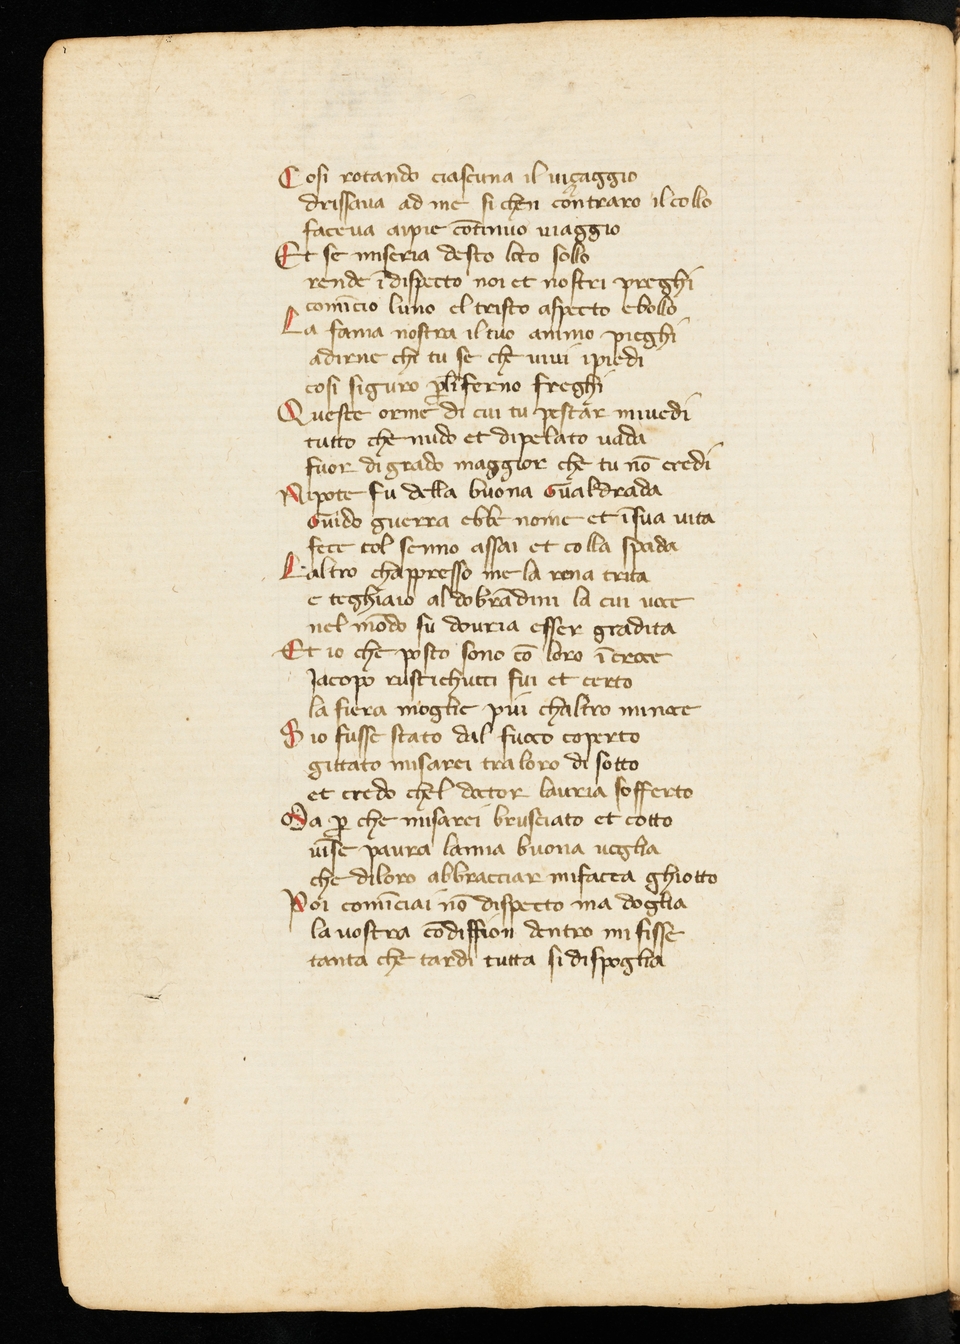 Cosi rotando ciascuna il uiçaggio
drissaua ad me si chen contraro il collo
faceua aipie cōtinuo uiaggio
Et se miseria desto loco sollo
rende ī dispecto noi et nostri preghi
comīcio luno el tristo aspecto ebollo
La fama nostra il tuo animo pieghi
adirne chi tu se che uiui ipiedi
cosi siguro ꝑliferno freghi
Queste orme di cui tu pestar miuedi
tutto che nudo et dipelato uada
fuor di grado maggior che tu nō credi
Nipote fu della buona Gualdrada
Guido guerra ebbe nome et ī sua uita
fece col senno assai et colla spada
Laltro chappresso me la rena trita
e teghiaio aldobrādini la cui uoce
nel mōdo su douria esser gradita
Et io che posto sono cō loro ī croce
Iacopo rustichucci fui et certo
la fiera moglie piu chaltro minoce
Sio fusse stato dal fuoco coperto
gittato misarei tra loro di sotto
et credo chel doctor lauria sofferto
Ma ꝑ che misarei brusciato et cotto
uise paura lamia buona uoglia
che diloro abbracciar mifacea ghiotto
Poi comīciai nō dispecto ma doglia
la uostra cōdission dentro mi fisse
tanta che tardi tutta si dispoglia